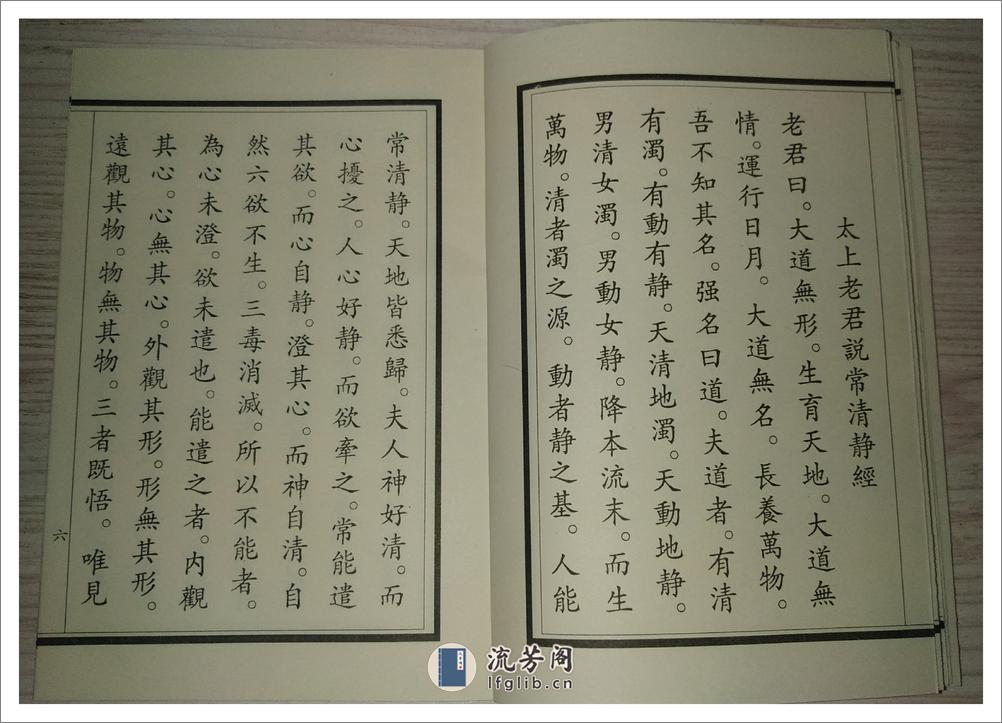 太上老君説常清静經
老君曰。大道無形。生育天地。大道無
情。運行日月。大道無名。長養萬物。
吾不知其名。强名曰道。夫道者。有清
有濁。有動有静。天清地濁。天動地静。
男清女濁。男動女静。降本流末。而生
萬物。清者濁之源。動者静之基。人能
常清静。天地皆悉歸。夫人神好清。而
心擾之。人心好静。而欲牽之。常能遣
其欲。而心自静。澄其心。而神自清。自
然六欲不生。三毒消滅。所以不能者。
為心未澄。欲未遣也。能遣之者。内觀
其心。心無其心。外觀其形。形無其形。
遠觀其物。物無其物。三者既悟。唯見
六
流芳阁
lfglib.cn